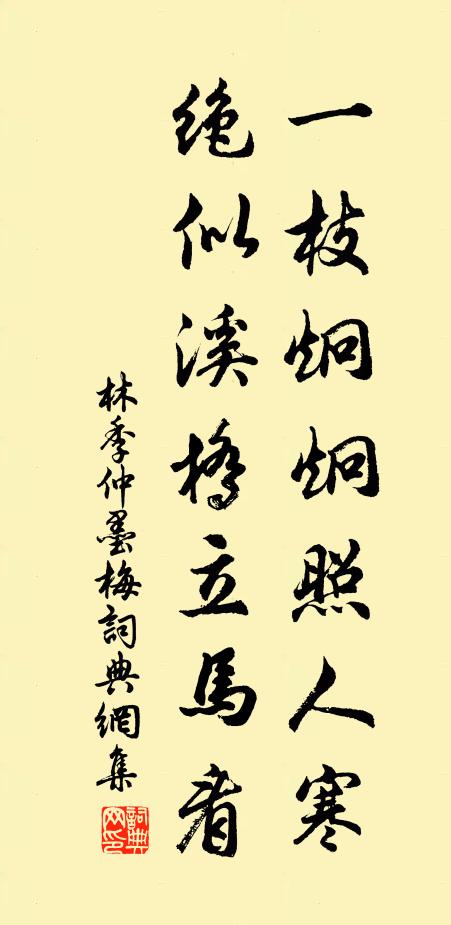 一枝炯炯照人寒
绝似溪橋立馬看
林季仲墨梅詞典網集
詞典网印